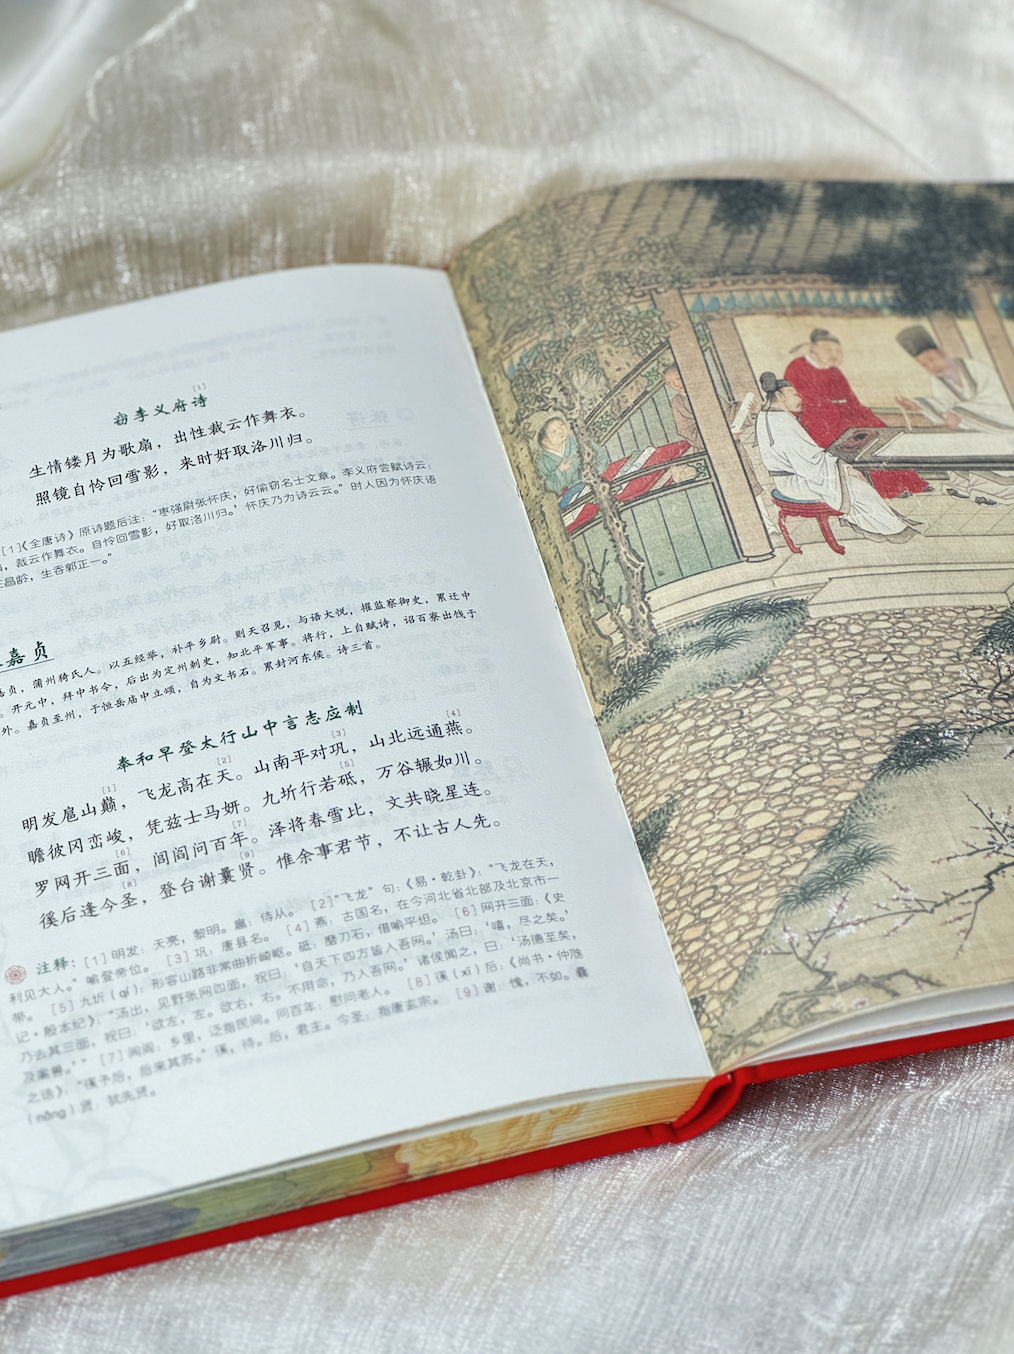 窃李义府诗[1]
生情镂月为歌扇，出性裁云作舞衣。
照镜自怜回雪影，来时好取洛川归。
[1]《全唐诗》原诗题后注：“枣强尉张怀庆，好偷窃名士文章。李义府尝赋诗云：
，裁云作舞衣。自怜回雪影，好取洛川归。’怀庆乃为诗云云。”时人因为怀庆语
王昌龄，生吞郭正一。”
嘉贞
嘉贞，蒲州猗氏人。以五经举，补平乡尉。则天召见，与语大悦，擢监察御史，累迁中
。开元中，拜中书令，后出为定州刺史，知北平军事。将行，上自赋诗，诏百寮出饯于
外。嘉贞至州，于恒岳庙中立颂，自为文书石。累封河东侯。诗三首。
奉和早登太行山中言志应制
明发扈山巅[1]，飞龙高在天[2]。山南平对巩[3]，山北远通燕[4]。
瞻彼冈峦峻，凭兹士马妍。九圻行若砥[5]，万谷辗如川。
罗网开三面[6]，闾阎问百年[7]。泽将春雪比，文共晓星连。
徯后逢今圣[8]，登台谢曩贤[9]。惟余事君节，不让古人先。
注释：[1]明发：天亮，黎明。扈：侍从。 [2]“飞龙”句：《易·乾卦》：“飞龙在天，
利见大人。”喻登帝位。 [3]巩：唐县名。 [4]燕：古国名，在今河北省北部及北京市一
带。 [5]九圻（qí）：形容山路非常曲折崎岖。砥：磨刀石，借喻平坦。 [6]网开三面：《史
记·殷本纪》：“汤出，见野张网四面，祝曰：‘自天下四方皆入吾网。’汤曰：‘嘻，尽之矣。’
乃去其三面，祝曰：‘欲左，左。欲右，右。不用命，乃入吾网。’诸侯闻之，曰：‘汤德至矣，
及禽兽。’” [7]闾阎：乡里，泛指民间。问百年：慰问老人。 [8]徯（xī）后：《尚书·仲虺
之诰》：“徯予后，后来其苏。”徯，待。后，君主。今圣：指唐玄宗。 [9]谢：愧，不如。曩
（nǎng）贤：犹先贤。